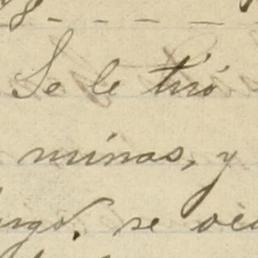 Se le tiró
minas, y
se